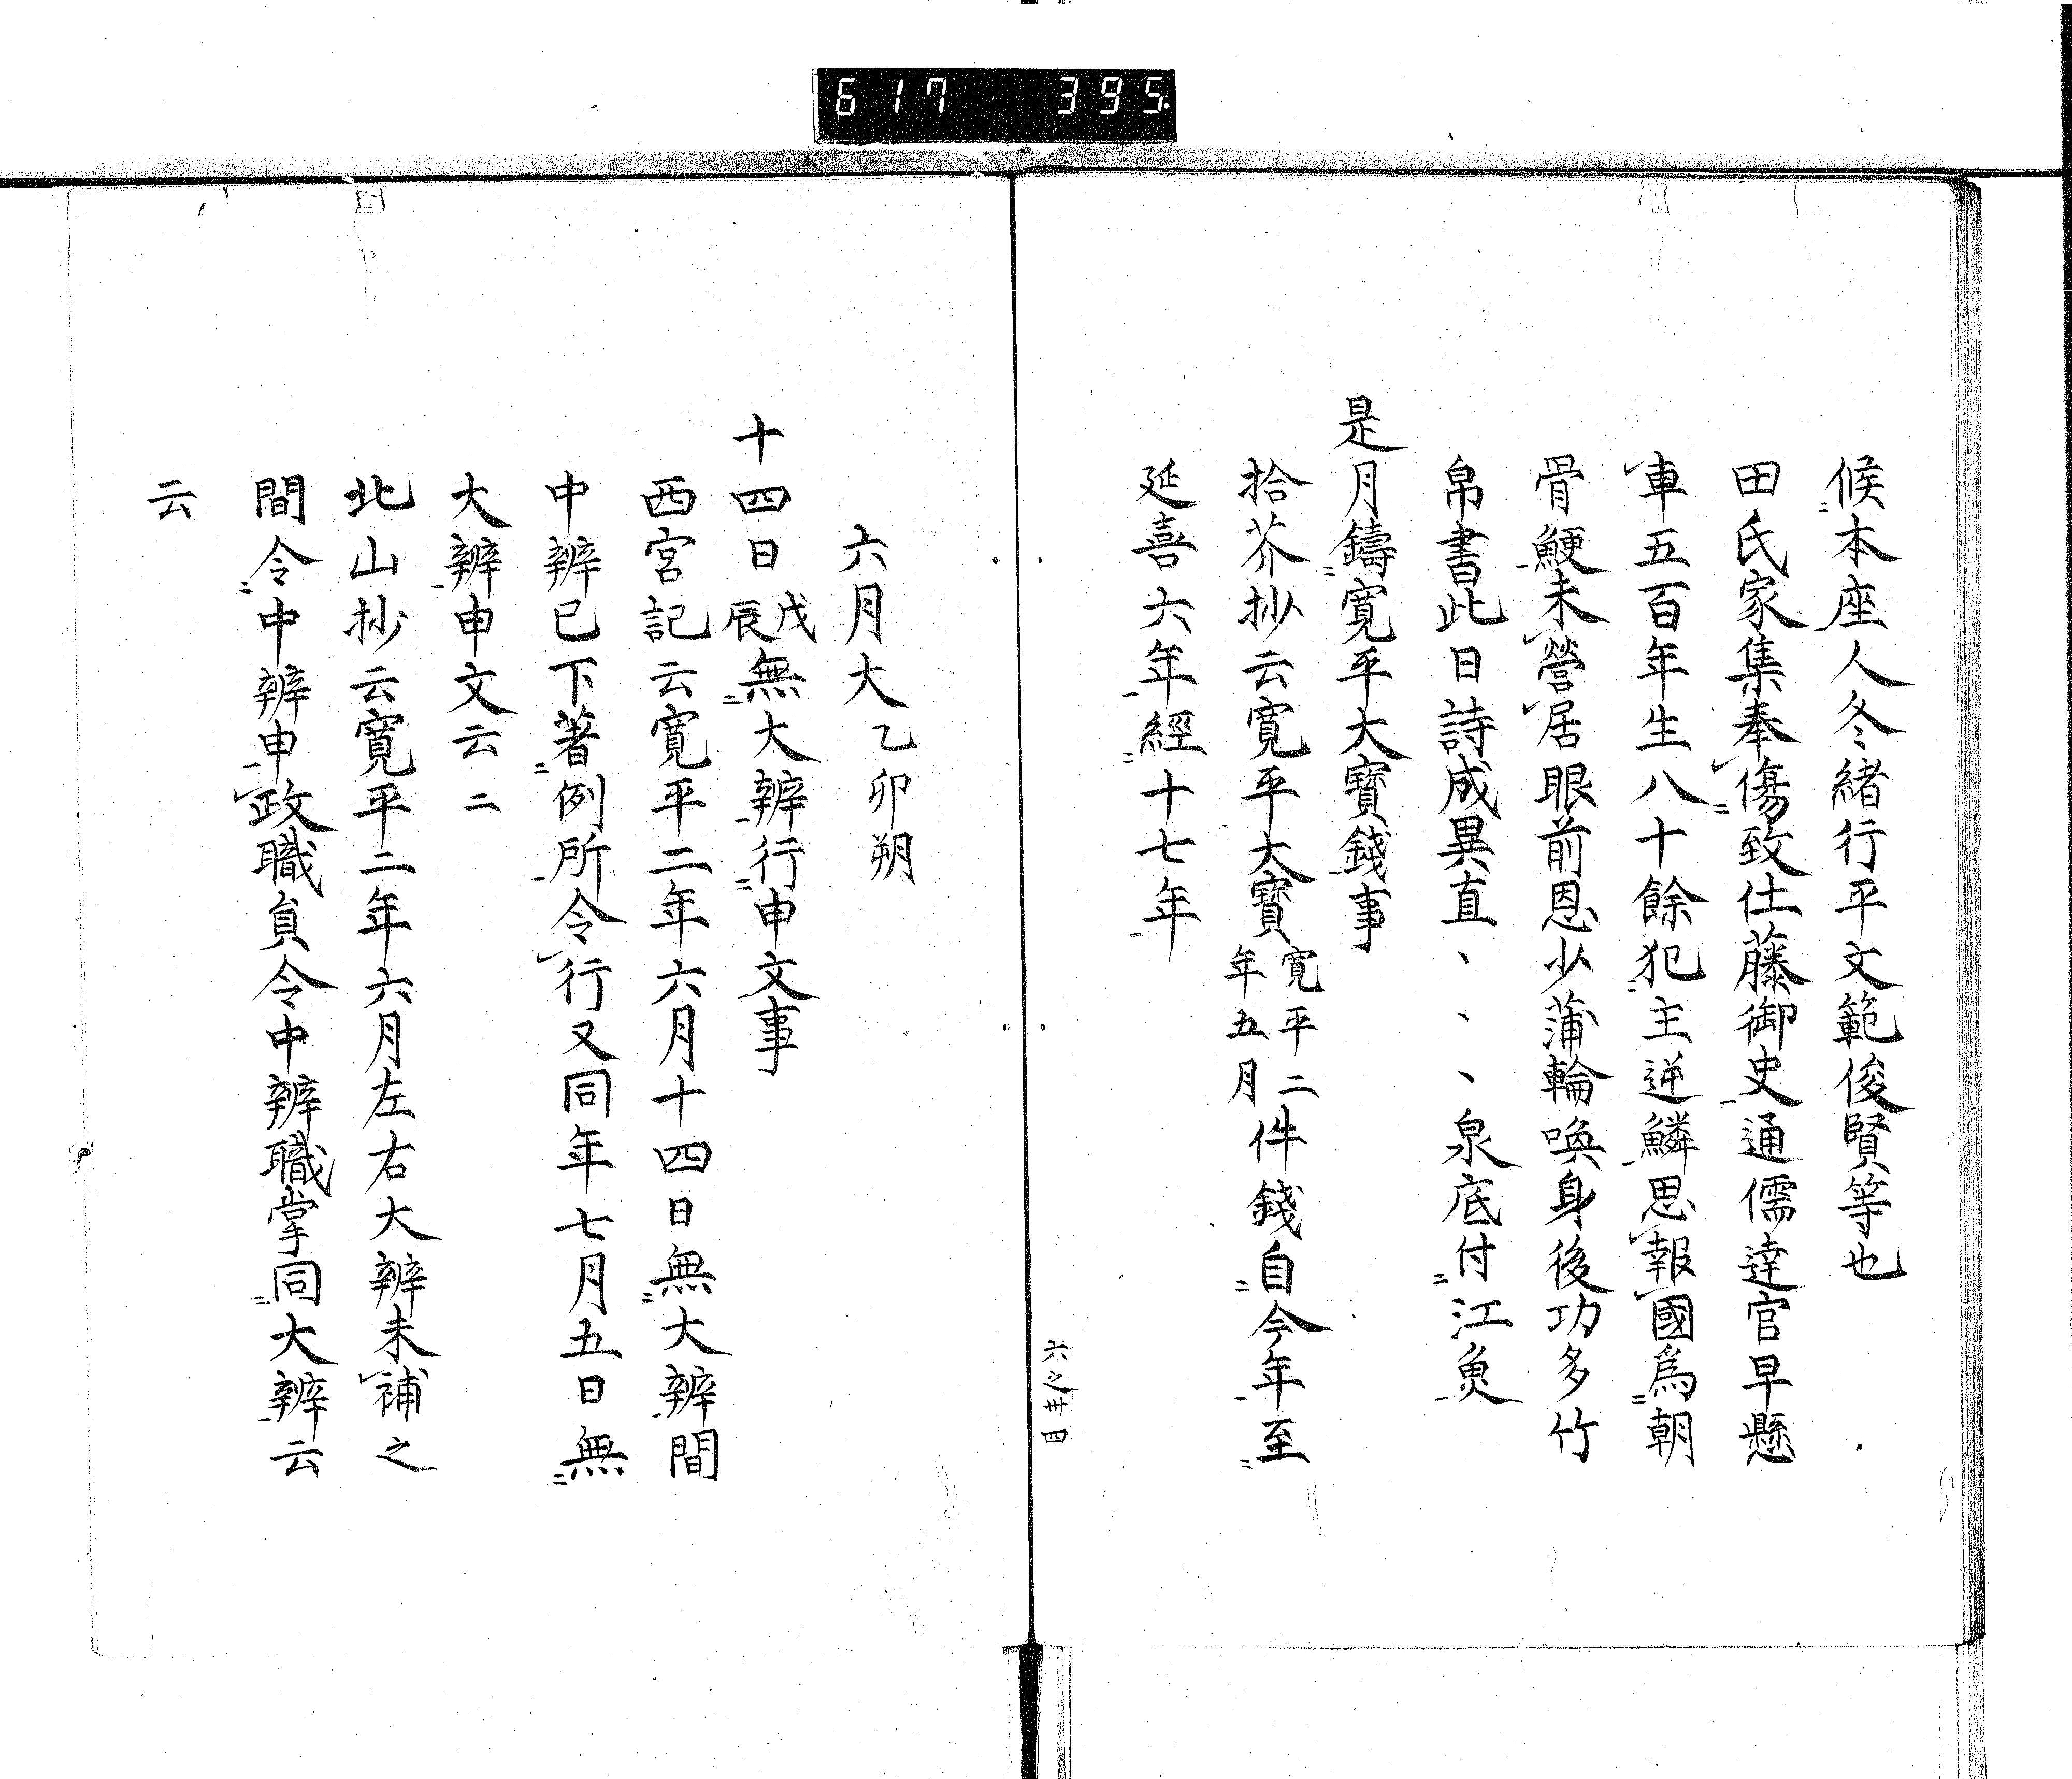 617 395
候本座人冬緒行平文範俊賢等也
田氏家集奉傷致仕藤御史通儒達官早懸
車五百年生八十餘犯主逆鱗思報國為朝
骨鯁未營居眼前恩少蒲輪喚身後功多竹
帛書此日詩成異直、、、泉底付江魚
是月鑄寛平大寶錢事
拾芥抄云寛平大寶寛平二年五月件錢自今年至
延喜六年經十七年
六之卅四
六月大乙卯朔
十四日戊辰無大辨行申文事
西宮記云寛平二年六月十四日無大辨間
中辨已下著例所令行又同年七月五日無
大辨申文云〻
北山抄云寛平二年六月左右大辨未補之
間令中辨申政職員令中辨職掌同大辨云
云